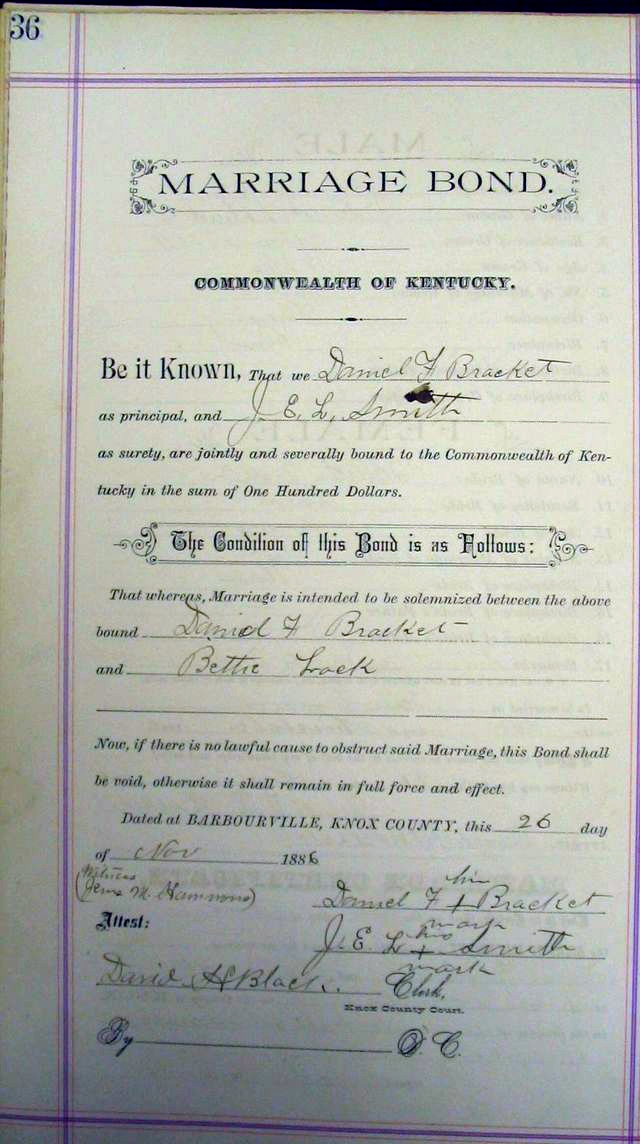 36
MARRIAGE BOND.
COMMONWEALTH OF KENTUCKY.
Be it Known, That we Daniel F Bracket
as principal, and J. E. L. Smith
as surety, are jointly and severally bound to the Commonwealth of Ken-
tucky in the sum of One Hundred Dollars.
The Condition of this Bond is as Follows:
That whereas, Marriage is intended to be solemnized between the above
bound Daniel F Bracket
and Bettie Lock
Now, if there is no lawful cause to obstruct said Marriage, this Bond shall
be void, otherwise it shall remain in full force and effect.
Dated at BARBOURVILLE, KNOX COUNTY, this 26 day
of Nov 1886
(Witness
M. Hammons)
his
Daniel F + Bracket
mark
Attest:
his
J. E. L + Smith
mark
David H Black. Clerk,
Knox County Court.
By D. C.